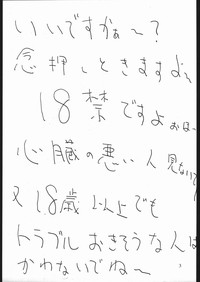 いいですかぁ〜?
念押しときますよぅ
18禁ですよ おほ
心臓の悪い人 見ないで
又18歳以上でも
トラブルおきそうな人は
かわないでね〜